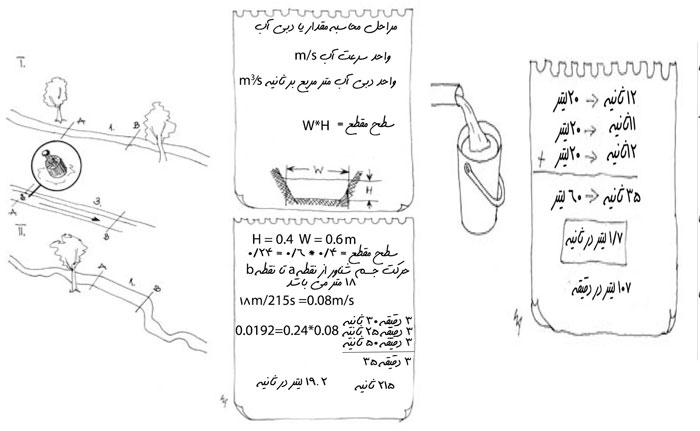 I.
A
1.
B
3.
A
B
II.
A
1.
B
مراحل محاسبه مقدار یا دبی آب
واحد سرعت آب m/s
واحد دبی آب متر مربع بر ثانیه m³/s
سطح مقطع = W*H
W
H
H = 0.4 W = 0.6 m
سطح مقطع = ۰/۴ * ۰/۶ = ۰/۲۴
حرکت جسم شناور از نقطه a تا نقطه b
۱۸ متر می باشد
۱۸m/215s =0.08m/s
۳ دقیقه ۳۰ ثانیه
۳ دقیقه ۲۵ ثانیه
0.0192=0.24*0.08
۳ دقیقه ۵۰ ثانیه
۳ دقیقه ۳۵
۲۱۵ ثانیه
۱۹.۲ لیتر در ثانیه
۱۲ثانیه -> ۲۰ لیتر
۱۱ثانیه -> ۲۰ لیتر
۱۲ثانیه -> ۲۰ لیتر
+
۳۵ ثانیه -> ۶۰ لیتر
۱/۷ لیتر در ثانیه
۱۰۷ لیتر در دقیقه